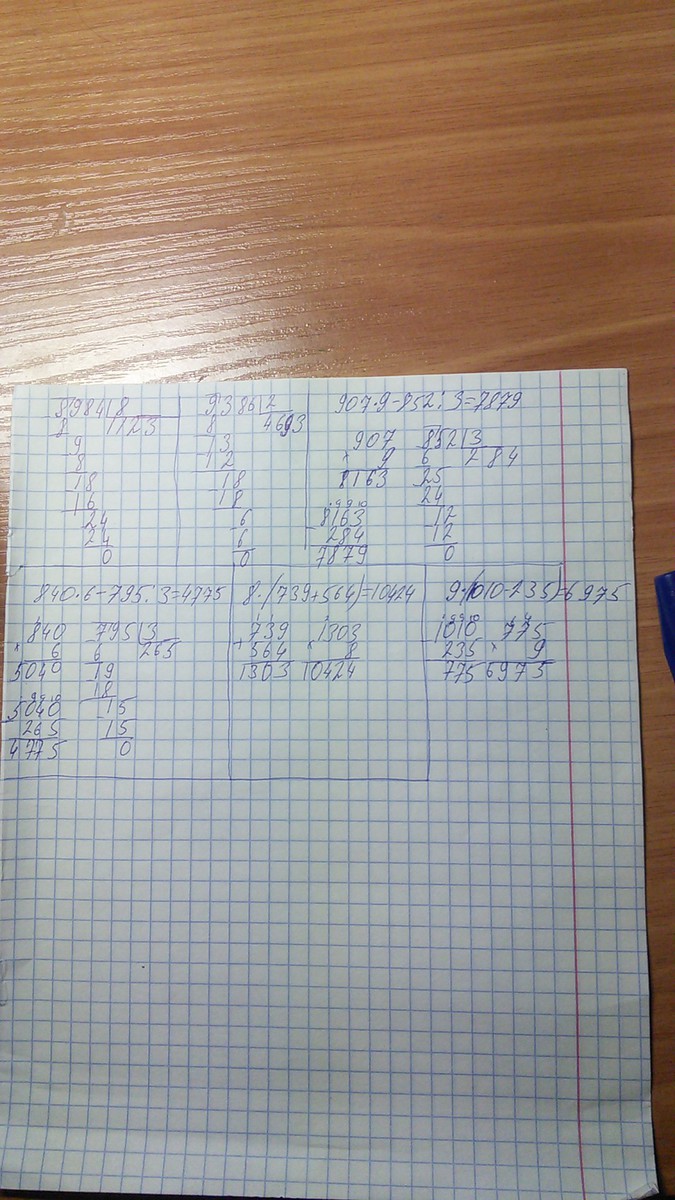 8984|8
8 1123
9
8
18
16
24
24
0
9386|2
8 4693
13
12
18
18
6
6
0
907·9-852:3=7879
907 852|3
× 9 6 284
8163 25
24
8163 12
- 284 12
7879 0
840·6-795:3=4775
840 795|3
× 6 6 265
5040 19
18
5040 15
265 15
4775 0
8·(739+564)=10424
739 1303
+564 × 8
1303 10424
9·(1010-235)=6975
1010 775
- 235 × 9
775 6975